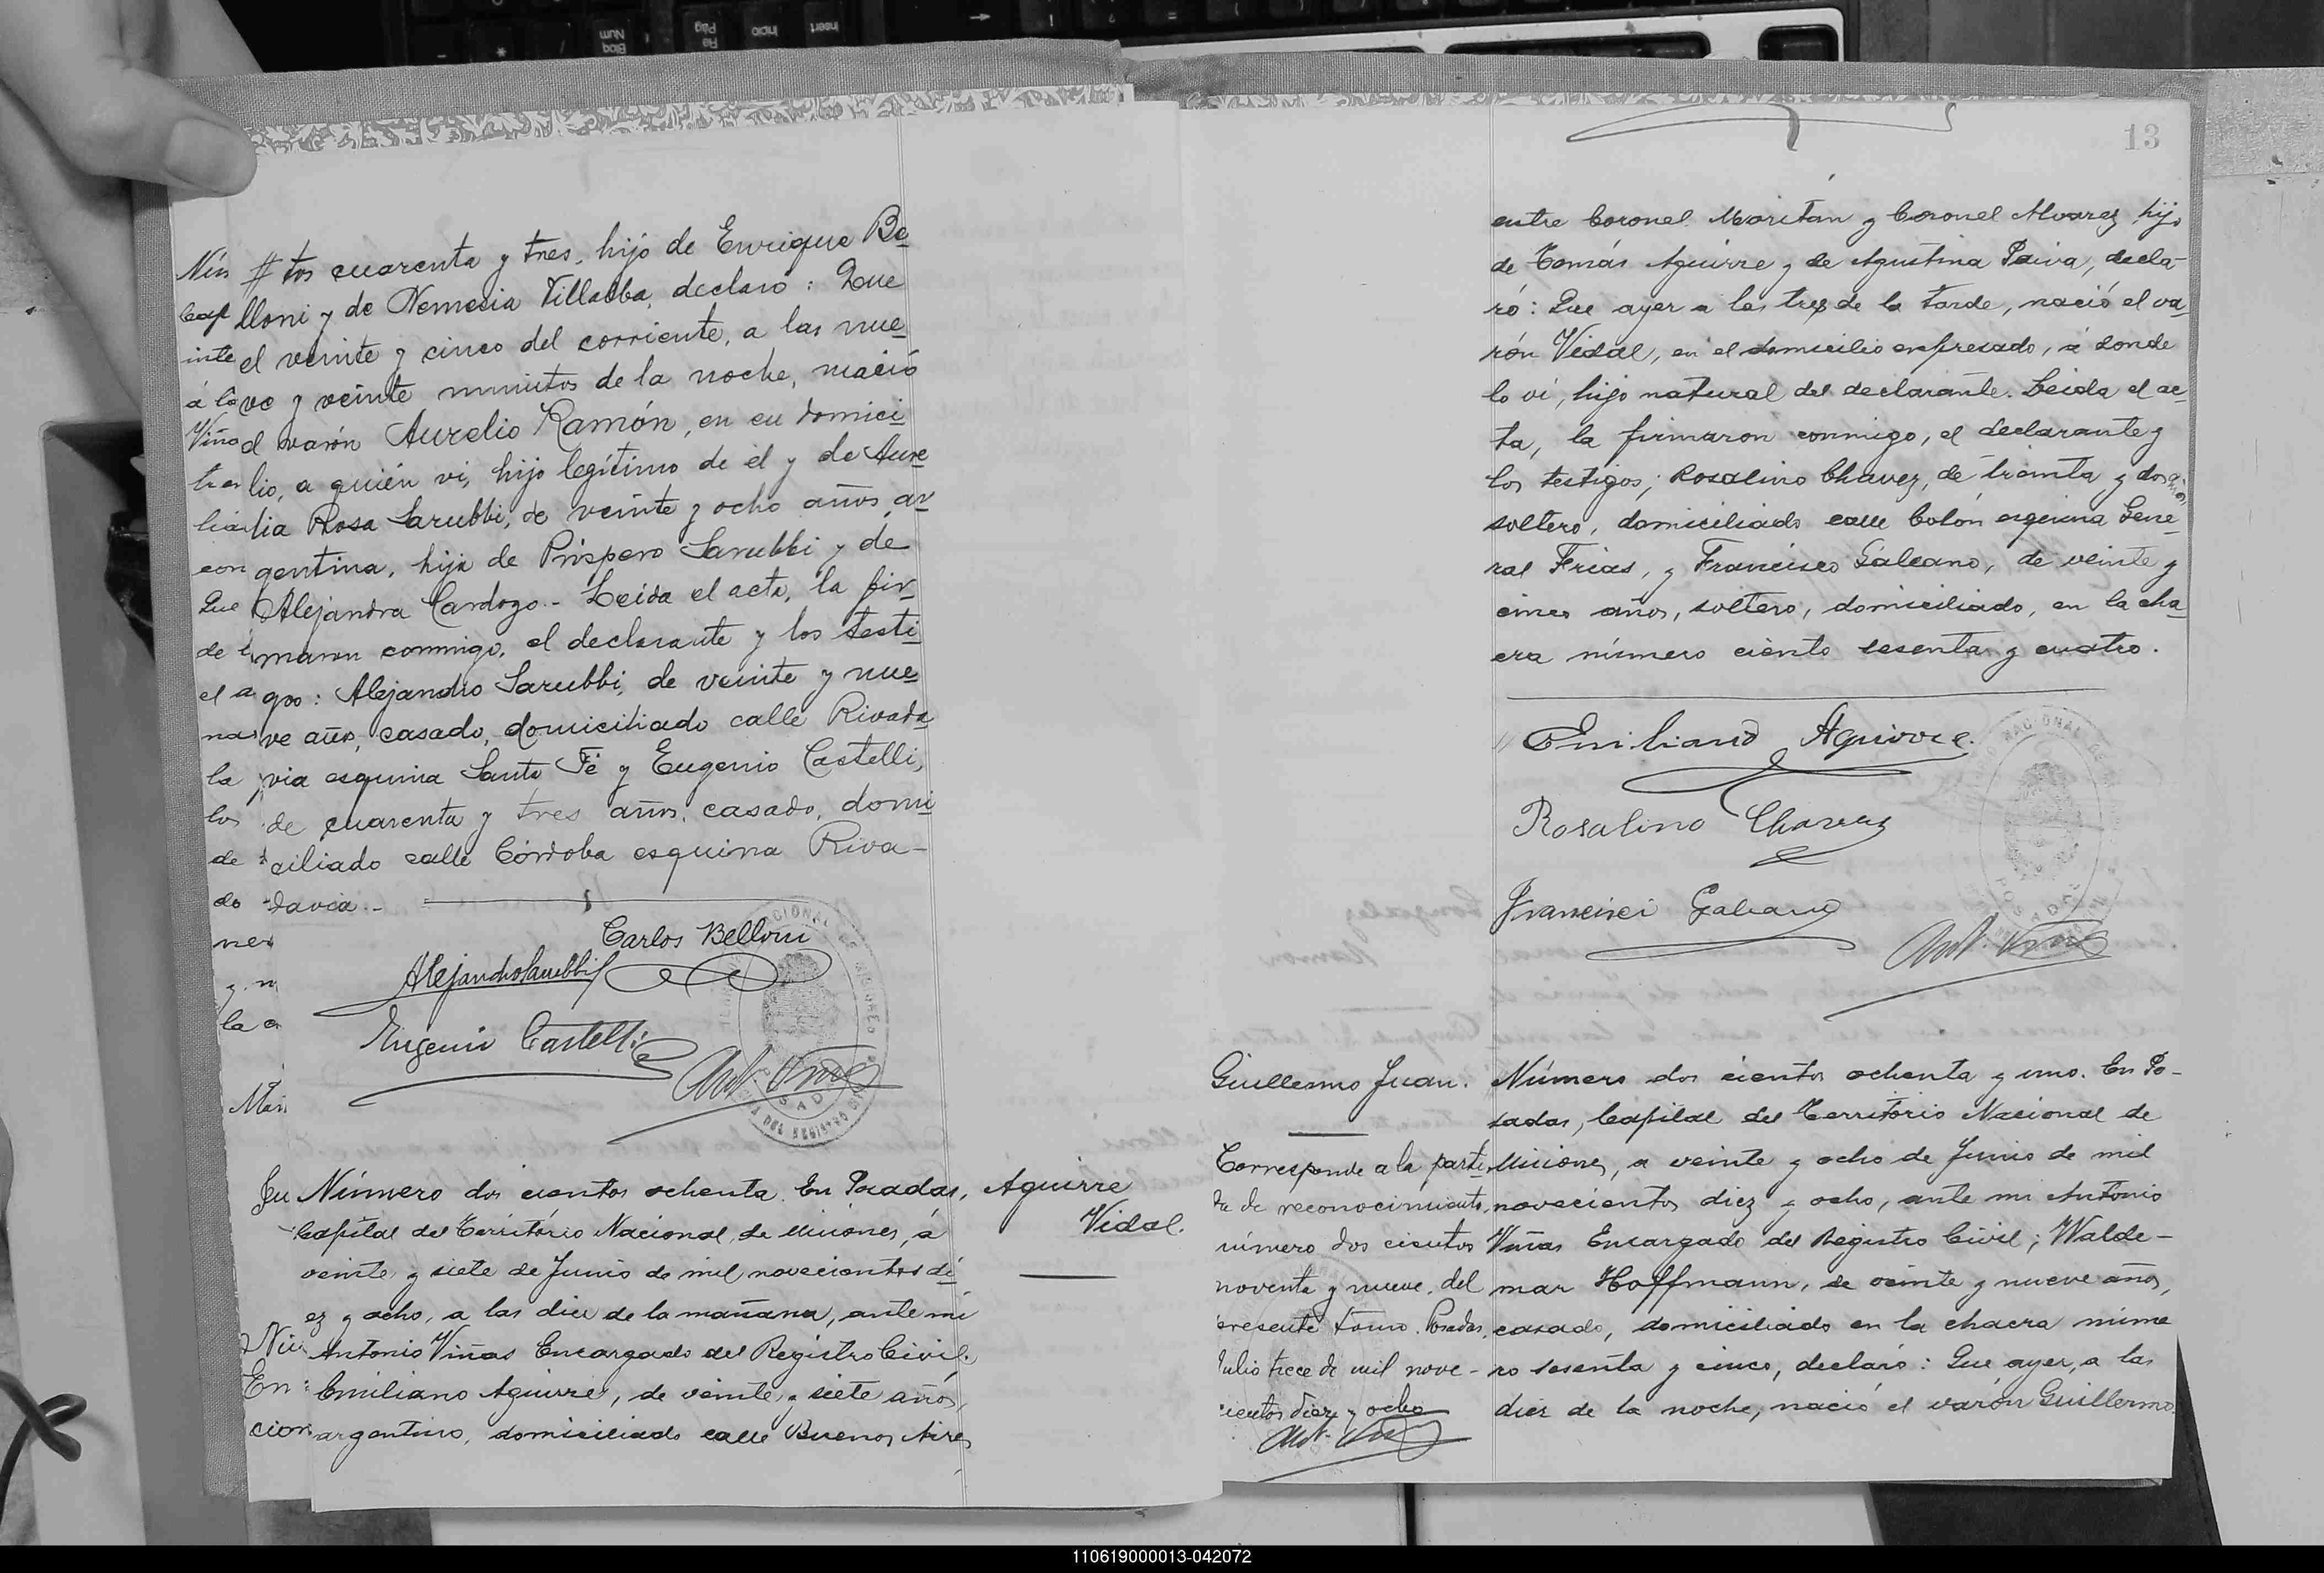 tos cuarenta y tres, hijo de Enrique Be
lloni y de Nemesia Villalba, declaró: Que
el veinte y cinco del corriente, a las nue
ve y veinte minutos de la noche, nació
el varón Aurelio Ramón, en su domici
lio, a quién vi, hijo legítimo de él y de Aure
lia Rosa Sarubbi, de veinte y ocho años, ar
gentina, hija de Próspero Sarubbi y de
Alejandra Cardozo.- Leída el acta, la fir
maron conmigo, el declarante y los testi
gos: Alejandro Sarubbi, de veinte y nue
ve años, casado, domiciliado calle Rivada
via esquina Santa Fé y Eugenio Castelli,
de cuarenta y tres años, casado, domi
ciliado calle Córdoba esquina Riva-
davia.-
Carlos Belloni
Alejandro Sarubbi
Eugenio Castelli
Ant. Viñas
Aguirre
Vidal.
Número dos cientos ochenta. En Posadas,
Capital del Território Nacional de Misiones, á
veinte y siete de Junio de mil novecientos di
ez y ocho, a las diez de la mañana, ante mi
Antonio Viñas Encargado del Registro Civil;
Emiliano Aguirre, de veinte y siete años,
argentino, domiciliado calle Buenos Aires
13
entre Coronel Maritan y Coronel Alvarez hijo
de Tomás Aguirre y de Agustina Paiva, decla-
ró: Que ayer a las tres de la tarde, nació el va
rón Vidal, en el domicilio expresado, á donde
lo ví, hijo natural del declarante. Leida el ac-
ta, la firmaron conmigo, el declarante y
los testigos; Rosalino Chavez, de treinta y dos años
soltero, domiciliado calle Colón esquina Gene
ral Frias, y Francisco Galeano, de veinte y
cinco años, soltero, domiciliado, en la cha
cra número ciento sesenta y cuatro.
Emiliano Aguirre.
Rosalino Chavez
Francisci Galeano
Ant. Viñas
Guillermo Juan.
Corresponde a la parti
da de reconocimiento,
número dos cientos
noventa y nueve, del
presente tomo. Posadas,
Julio trece de mil nove-
cientos diez y ocho
Ant. Viñas
Número dos cientos ochenta y uno. En Po-
sadas, Capital del Territorio Nacional de
Misiones, a veinte y ocho de Junio de mil
novecientos diez y ocho, ante mi Antonio
Viñas Encargado del Registro Civil; Walde-
mar Hoffmann, de veinte y nueve años,
casado, domiciliado en la chacra núme
ro sesenta y cinco, declaró: Que ayer, a las
diez de la noche, nació el varón Guillermo
110619000013-042072